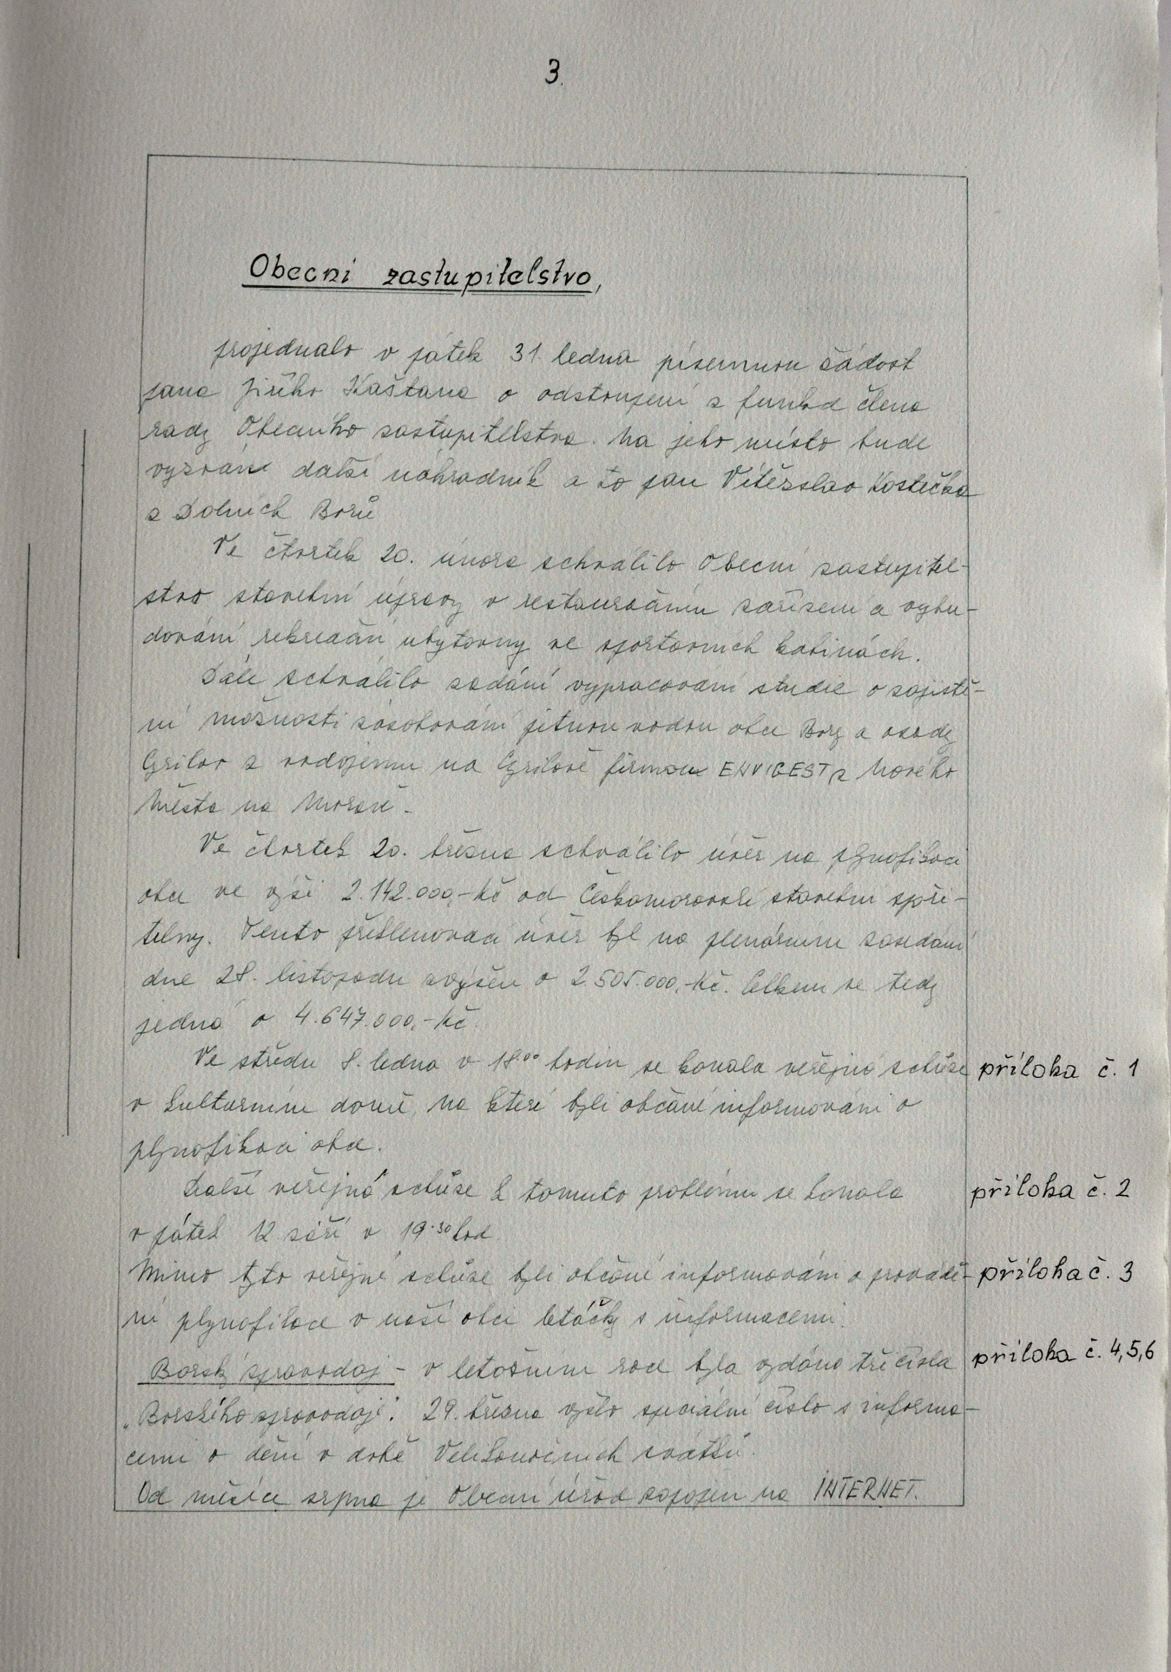 3.
Obecní zastupitelstvo,
projednalo v pátek 31 ledna písemnou žádost
pana Jiřího Kaštana o odstoupení z funkce člena
rady Obecního zastupitelstva. Na jeho místo bude
vyzván další náhradník a to pan Vítězslav Kostečka
z Dolních Borů
Ve čtvrtek 20. února schválilo Obecní zastupitel-
stvo stavební úpravy v restauračním zařízení a vybu-
dování rekreační ubytovny ve sportovních kabinách.
Dále schválilo zadání vypracování studie o zajiště-
ní možnosti zásobování pitnou vodou obce Bory a osady
Cyrilov z vodojemu na Cyrilově firmou ENVIGEST z Nového
Města na Moravě.
Ve čtvrtek 20. března schválilo úvěr na plynofikaci
obce ve výši 2.142.000,-Kč od Českomoravské stavební spoři-
telny. Tento překlenovací úvěr byl na plenárním zasedání
dne 28. listopadu zvýšen o 2.505.000,-Kč. Celkem se tedy
jedná o 4.647.000,-Kč.
Ve středu 8. ledna v 18.00 hodin se konala veřejná schůze příloha č. 1
v kulturním domě, na které byli občané informováni o
plynofikaci obce.
Další veřejná schůze k tomuto problému se konala příloha č. 2
v pátek 12 září v 19.30 hod.
Mimo tyto veřejné schůze byli občané informováni o provádě- příloha č. 3
ní plynofikace v naší obci letáčky s informacemi.
Borský zpravodaj - v letošním roce byla vydána tři čísla příloha č. 4,5,6
„Borského zpravodaje". 29. března vyšlo speciální číslo s informa-
cemi o dění v době Velikonočních svátků.
Od měsíce srpna je Obecní úřad zapojen na INTERNET.